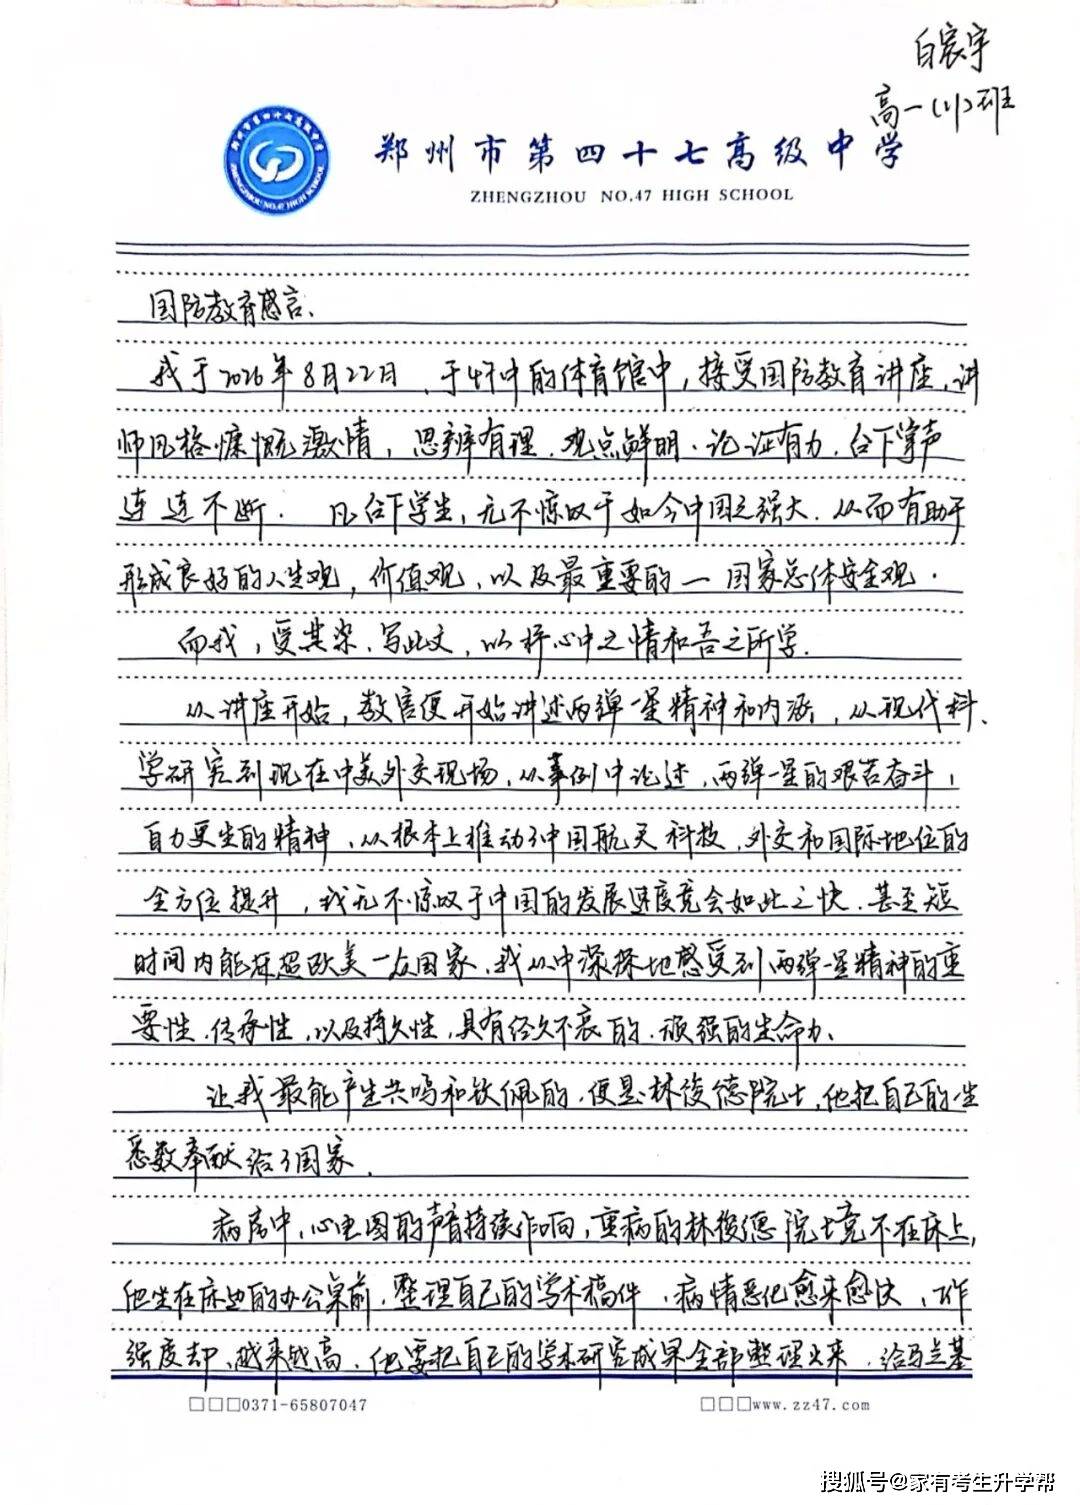 白宸宇
高一(1)班
郑州市第四十七高级中学
ZHENGZHOU NO.47 HIGH SCHOOL
国防教育感言.
我于2026年8月22日,于47中的体育馆中,接受国防教育讲座,讲
师风格慷慨激情,思辨有理.观点鲜明.论证有力,台下掌声
连连不断. 凡台下学生,无不惊叹于如今中国之强大.从而有助于
形成良好的人生观,价值观,以及最重要的一国家总体安全观.
而我,受其染.写此文,以抒心中之情和吾之所学.
从讲座开始,教官便开始讲述两弹一星精神和内涵,从现代科、
学研究到现在中美外交现场,从事例中论述,两弹一星的艰苦奋斗,
自力更生的精神,从根本上推动了中国航天科技,外交和国际地位的
全方位提升,我无不惊叹于中国的发展速度竟会如此之快.甚至短
时间内能反超欧美一众国家.我从中深深地感受到两弹一星精神的重
要性.传承性,以及持久性,具有经久不衰的.顽强的生命力.
让我最能产生共鸣和钦佩的,便是林俊德院士,他把自己的一生
悉数奉献给了国家.
病房中,心电图的声音持续作响,重病的林俊德院士竟不在床上,
他坐在床边的办公桌前,整理自己的学术稿件,病情恶化愈来愈快,工作
强度却越来越高,他要把自己的学术研究成果全部整理出来.给马兰基
□□□0371-65807047
□□□www.zz47.com
搜狐号@家有考生升学帮